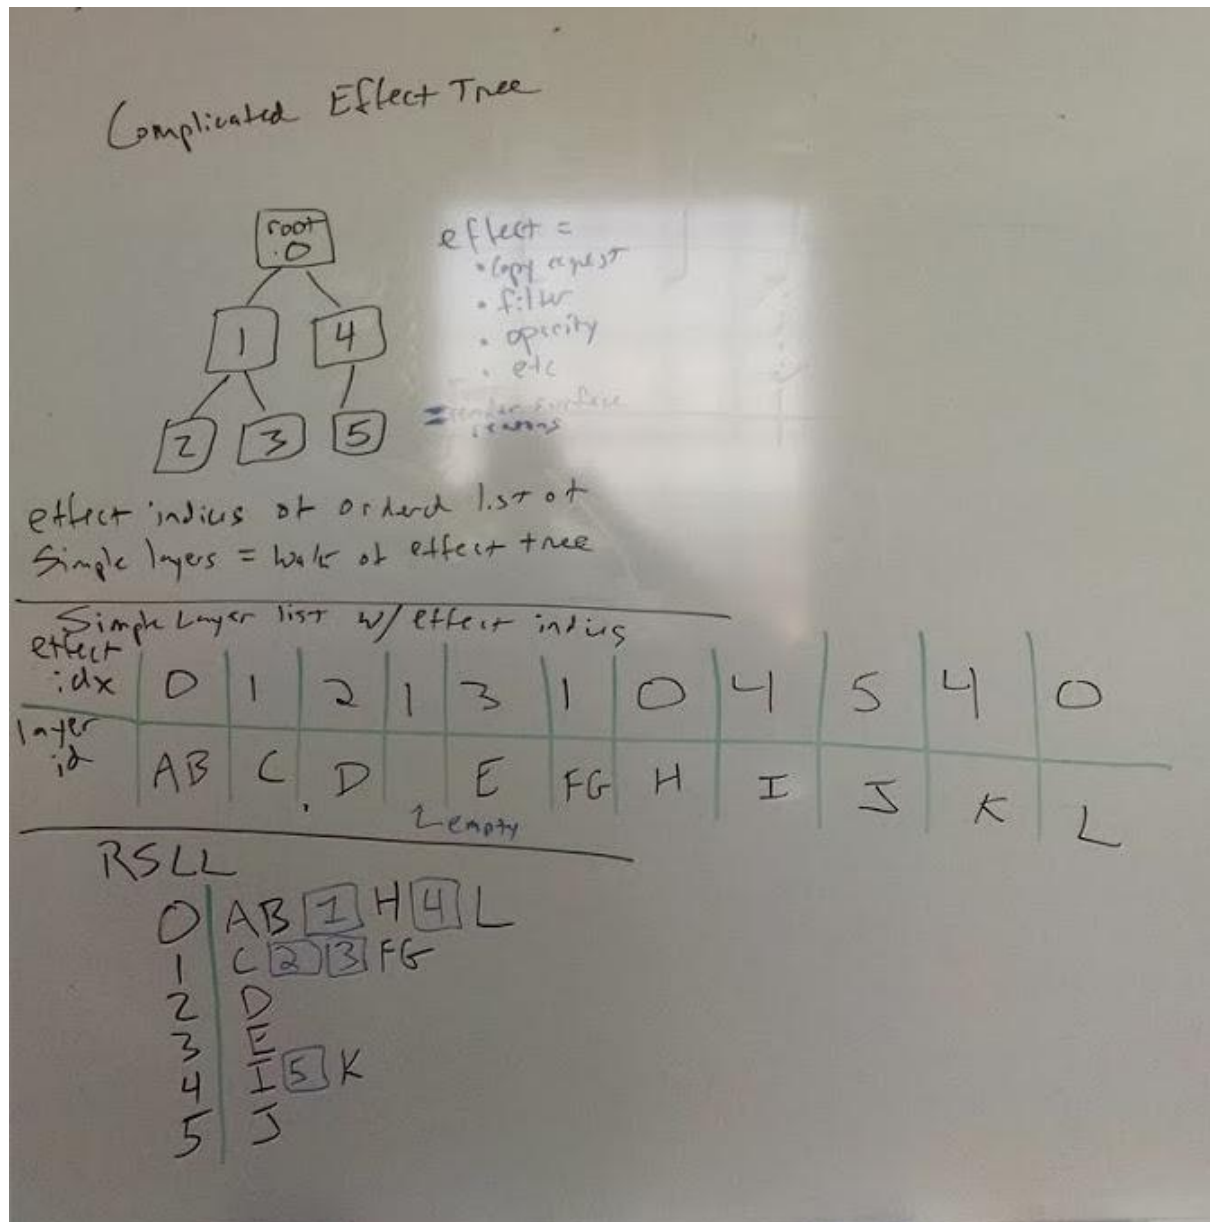 Complicated Effect Tree
root
0
effect =
• copy request
• filter
• opacity
• etc
= render surface
reasons
1 4
2 3 5
effect indices of ordered list of
simple layers = walk of effect tree
Simple Layer list w/ effect indices
effect
idx 0 1 2 1 3 1 0 4 5 4 0
layer
id AB C D E FG H I J K L
empty
RSLL
0 AB 1 H 4 L
1 C 2 3 FG
2 D
3 E
4 I 5 K
5 J